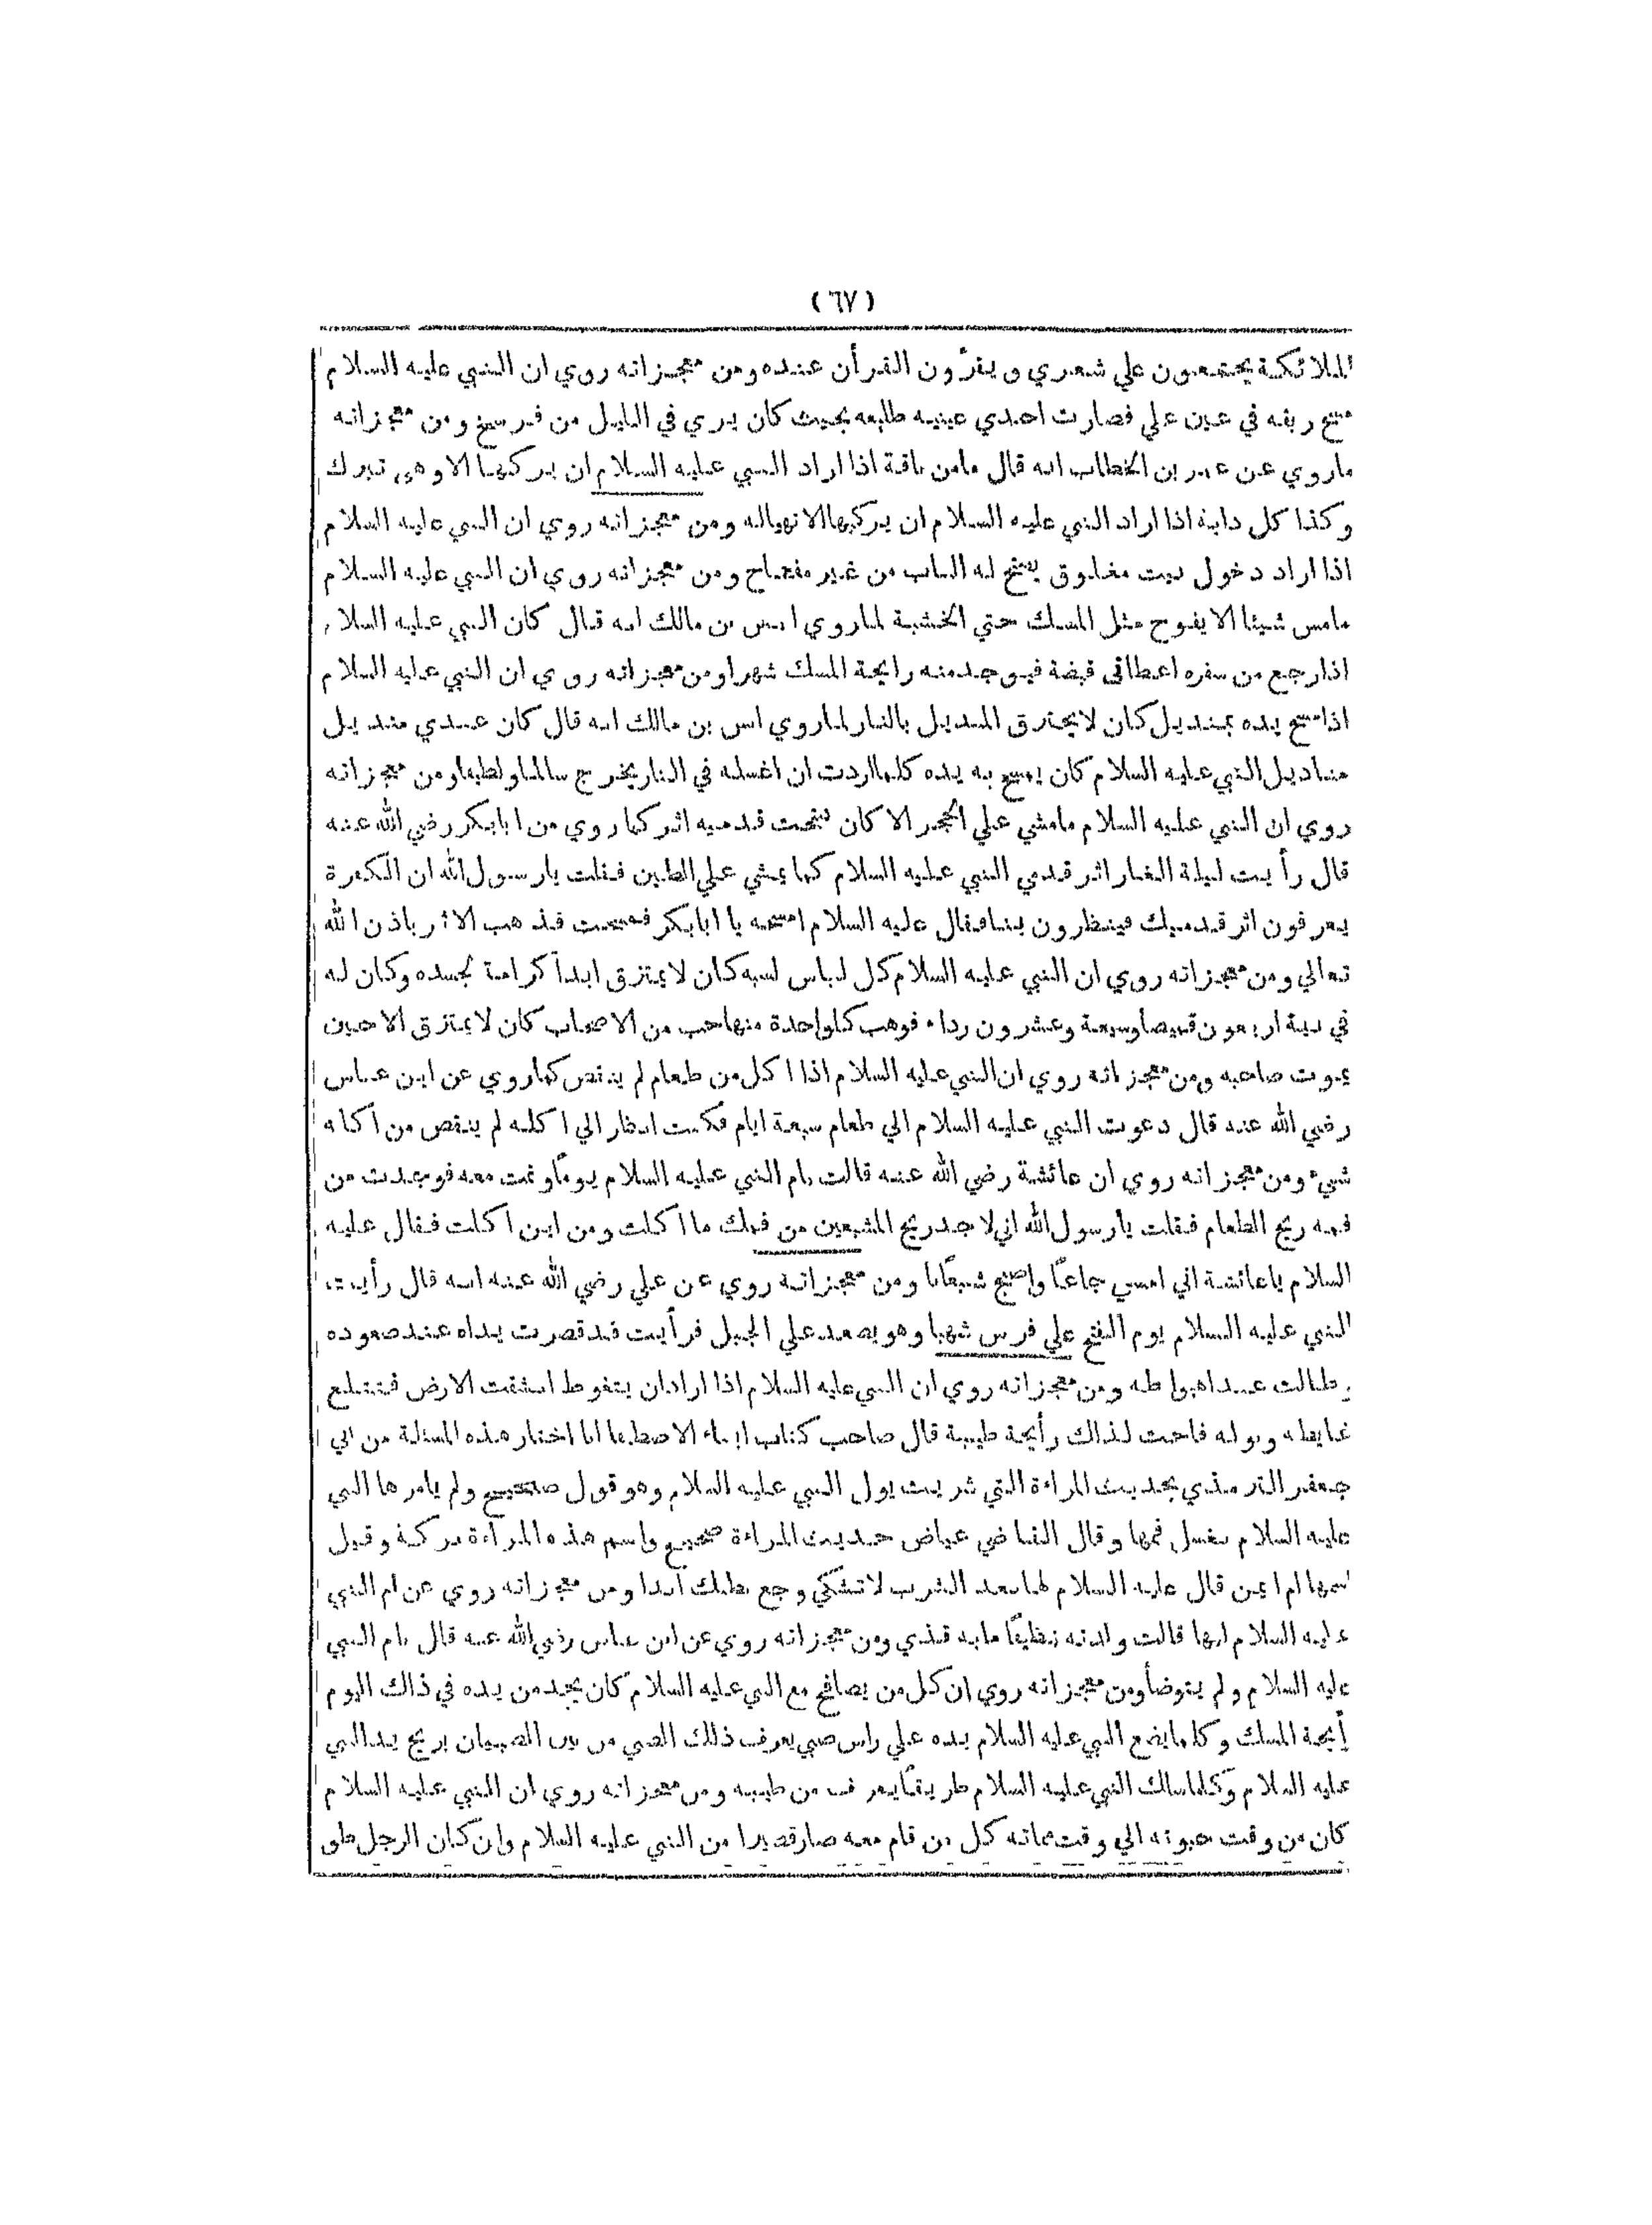 (٦٧)
الملائكة يجتمعون علي شعري ويقرّون القرأن عنده ومن معجزاته روي ان النبي عليه السلام
مسح ريقه في عين علي فصارت احدي عينيه طليعه بحيث كان يري في الليل من فرسخ ومن معجزاته
ماروي عن عمر بن الخطاب انه قال مامن ناقة اذا اراد النبي عليه السلام ان يركبها الا وهي تبرك
وكذا كل دابة اذا اراد النبي عليه السلام ان يركبها الا تهياله ومن معجزاته روي ان النبي عليه السلام
اذا اراد دخول بيت مغلوق يفتح له الباب من غير مفتاح ومن معجزاته روي ان النبي عليه السلام
مامس شيئا الا يفوح مثل المسك حتي الخشبة لماروي انس بن مالك انه قال كان النبي عليه السلا
اذا رجع من سفره اعطاني قبضة فيوجد منه رايحة المسك شهرا ومن معجزاته روي ان النبي عليه السلام
اذا مسح يده بمنديل كان لايحترق المنديل بالنار لماروي انس بن مالك انه قال كان عندي منديل
مناديل النبي عليه السلام كان يمسح به يده كلما اردت ان اغسله في النار يخرج سالما ولطيفا ومن معجزاته
روي ان النبي عليه السلام مامشي علي الحجر الا كان تحت قدميه اثر كما روي من ابابكر رضي الله عنه
قال رأيت ليلة الغار اثر قدمي النبي عليه السلام كما يمشي علي الطين فقلت يارسول الله ان الكفرة
يعرفون اثر قدميك فينظرون بنا فقال عليه السلام امسحه يا ابابكر فمسحت فذهب الاثر باذن الله
تعالي ومن معجزاته روي ان النبي عليه السلام كل لباس لبسه كان لايمتزق ابداً كرامة لجسده وكان له
في بيته اربعون قميصا وسبعة وعشرون رداء فوهب كلواحدة منها صاحب من الاصحاب كان لايمتزق الا حين
يموت صاحبه ومن معجزاته روي ان النبي عليه السلام اذا اكل من طعام لم ينقص كماروي عن ابن عباس
رضي الله عنه قال دعوت النبي عليه السلام الي طعام سبعة ايام فكنت انظار الي اكله لم ينقص من اكله
شيء ومن معجزاته روي ان عائشة رضي الله عنه قالت نام النبي عليه السلام يوماً ونمت معه فوجدت من
فمه ريح الطعام فقلت يارسول الله اني لاجد ريح المشبعين من فمك ما اكلت ومن اين اكلت فقال عليه
السلام ياعائشة اني امسي جاعاً واصبح شبعاناً ومن معجزاته روي عن علي رضي الله عنه انه قال رأيت
النبي عليه السلام يوم الفتح علي فرس شهبا وهو يصعد علي الجبل فرأيت قد قصرت يداه عند صعوده
وطالت عند اهبواطه ومن معجزاته روي ان النبي عليه السلام اذا اراد ان يتغوط انشقت الارض فتبتلع
غايطه وبوله فاحت لذالك رأيحة طيبة قال صاحب كتاب انباء الاصطفا انا اختار هذه المسئلة من ابي
جعفر الترمذي بحديث المراءة التي شربت بول النبي عليه السلام وهو قول صحيح ولم يامرها النبي
عليه السلام بغسل فمها وقال القاضي عياض حديث المراءة صحيح واسم هذه المراءة بركة وقيل
اسمها ام ايمن قال عليه السلام لها بعد الشرب لاتشتكي وجع بطنك ابدا ومن معجزاته روي عن ام النبي
عليه السلام انها قالت ولدته نظيفاً مابه قذي ومن معجزاته روي عن ابن عباس رضي الله عنه قال نام النبي
عليه السلام ولم يتوضأ ومن معجزاته روي ان كل من يصافح مع النبي عليه السلام كان يجد من يده في ذالك اليوم
رأيحة المسك وكلما يضع النبي عليه السلام يده علي راس صبي يعرف ذلك الصبي من بين الصبيان بريح يد النبي
عليه السلام وكلما سالك النبي عليه السلام طريقاً يعرف من طيبه ومن معجزاته روي ان النبي عليه السلام
كان من وقت حبوته الي وقت مماته كل من قام معه صار قصيرا من النبي عليه السلام وان كان الرجل طو